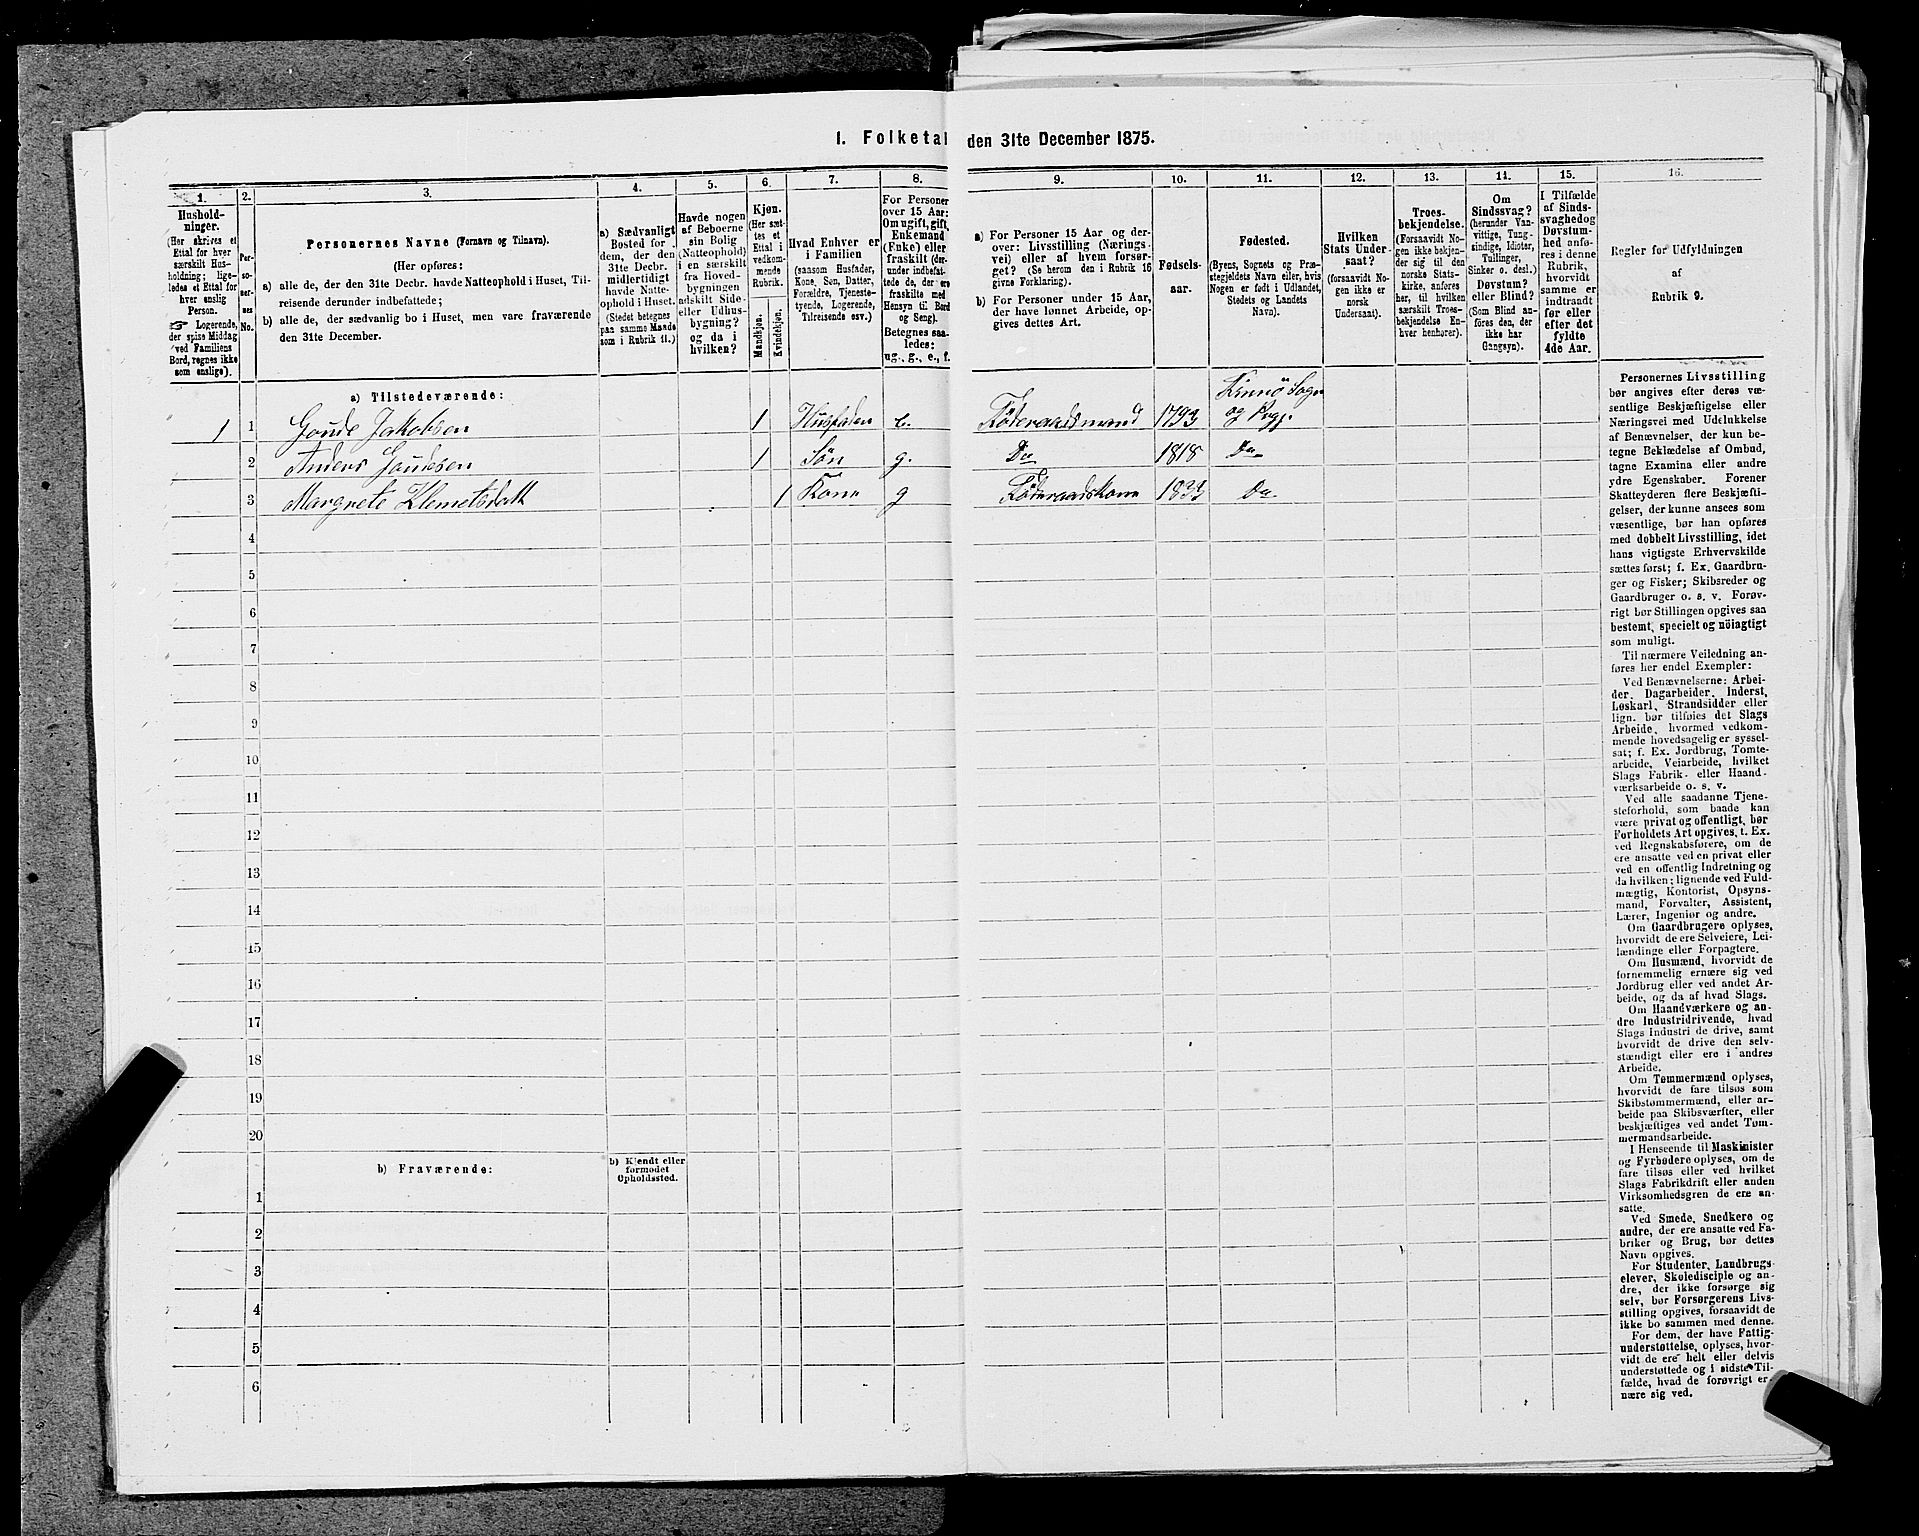 1. Folketal den 31te December 1875.
1.
Hushold-
ninger.
(Her skrives et
Ettal for hver
særskilt Hus-
holdning; lige-
ledes et Ettal for
hver enslig
Person.
☞ Logerende,
der spise Middag
ved Familiens
Bord, regnes ikke
som enslige).
2.
Per-
so-
ner-
nes
No.
3.
Personernes Navne (Fornavn og Tilnavn).
(Her opføres:
a) alle de, der den 31te Decbr. havde Natteophold i Huset, Til-
reisende derunder indbefattede;
b) alle de, der sædvanlig bo i Huset, men vare fraværende
den 31te December.
4.
a) Sædvanligt
Bosted for
dem, der den
31te Decbr.
midlertidigt
havde Natte-
ophold i Huset.
(Stedet betegnes
paa samme Maade
som i Rubrik 11.)
5.
Havde nogen
af Beboerne
sin Bolig
(Natteophold)
i en særskilt
fra Hoved-
bygningen
adskilt Side-
eller Udhus-
bygning?
og da i
hvilken?
6.
Kjøn.
(Her sæt-
tes et
Ettal i
vedkom-
mende
Rubrik.
Mandkjøn.
Kvindekjøn.
7.
Hvad Enhver er
i Familien
(saasom Husfader,
Kone, Søn, Datter,
Forældre, Tjeneste-
tyende, Logerende,
Tilreisende osv.)
8.
For Personer
over 15 Aar:
Om ugift, gift,
Enkemand
(Enke) eller
fraskilt (der-
under indbefat-
tede de, der ere
fraskilte med
Hensyn til Bord
og Seng).
Betegnes saa-
ledes:
ug., g., e., f.
9.
a) For Personer 15 Aar og der-
over: Livsstilling (Nærings-
vei) eller af hvem forsør-
get? (Se herom den i Rubrik 16
givne Forklaring).
b) For Personer under 15 Aar,
der have lønnet Arbeide, op-
gives dettes Art.
10.
Fødsels-
aar.
11.
Fødested.
(Byens, Sognets og Præ-
stegjeldets Navn eller, hvis
Nogen er født i Udlandet,
Stedets og Landets
Navn).
12.
Hvilken
Stats Under-
saat?
(forsaavidt No-
gen ikke er
norsk
Undersaat).
13.
Troes-
bekjendelse.
(Forsaavidt No-
gen ikke bekjen-
der sig til den
norske Stats-
kirke, anføres
her, til hvilken
særskilt Troes-
bekjendelse En-
hver henhører).
14.
Om
Sindssvag?
(herunder Van-
vittige, Tung-
sindige, Idioter,
Tullinger,
Sinker o. desl.)
Døvstum?
eller Blind?
(Som Blind an-
føres den, der
ikke har
Gangsyn).
15.
I Tilfælde
af Sinds-
svaghed og
Døvstum-
hed anfø-
res i denne
Rubrik,
hvorvidt
samme er
indtraadt
før eller
efter det
fyldte
4de Aar.
16.
Regler for Udfyldningen
af
Rubrik 9.
a) Tilstedeværende:
Kinnö Sogn
1 1 Gonde Jakobsen 1 Husfader e. Föderaadsmand 1793 og Prgj.
2 Anders Gondesen 1 Søn g. Do 1818 Do
3 Margrete Klemetsdatt 1 Kone g Föderaadskone 1833 Do
4
5
6
7
8
9
10
11
12
13
14
15
16
17
18
19
20
b) Fraværende:
b) Kjendt eller
formodet
Opholdssted.
1
2
3
4
5
6
Personernes Livsstilling
bør angives efter deres væ-
sentlige Beskjæftigelse eller
Næringsvei med Udelukkelse
af Benævnelser, der kun be-
tegne Beklædelse af Ombud,
tagne Examina eller andre
ydre Egenskaber. Forener
Skatteyderen flere Beskjæfti-
gelser, der kunne ansees som
væsentlige, bør han opføres
med dobbelt Livsstilling, idet
hans vigtigste Erhvervskilde
sættes først; f. Ex. Gaardbru-
ger og Fisker; Skibsreder og
Gaardbruger o. s. v. Forøv-
rigt bør Stillingen opgives saa
bestemt, specielt og nøiagtigt
som muligt.
Til nærmere Veiledning an-
føres her endel Exempler:
Ved Benævnelserne: Arbei-
der, Dagarbeider, Inderst,
Løskarl, Strandsidder eller
lign. bør tilføies det Slags
Arbeide, hvormed vedkom-
mende hovedsagelig er syssel-
sat; f. Ex. Jordbrug, Tomte-
arbeide, Veiarbeide, hvilket
Slags Fabrik- eller Haand-
værksarbeide o. s. v.
Ved alle saadanne Tjene-
steforhold, som baade kan
være privat og offentligt, bør
Forholdets Art opgives, t. Ex.
ved Regnskabsførere, om de
ere ansatte ved en privat eller
ved en offentlig Indretning og
da hvilken; lignende ved Fuld-
mægtig, Kontorist, Opsyns-
mand, Forvalter, Assistent,
Lærer, Ingeniør og andre.
Om Gaardbrugere oplyses,
hvorvidt de ere Selveiere, Lei-
lændinge eller Forpagtere.
Om Husmænd, hvorvidt de
fornemmelig ernære sig ved
Jordbrug eller ved andet Ar-
beide, og da af hvad Slags.
Om Haandværkere og an-
dre Industridrivende, hvad
Slags Industri de drive, samt
hvorvidt de drive den selv-
stændigt eller ere i andres
Arbeide.
Om Tømmermænd oplyses,
hvorvidt de fare tilsøs som
Skibstømmermænd, eller ar-
beide paa Skibsværfter, eller
beskjæftiges ved andet Tøm-
mermandsarbeide.
I Henseende til Maskinister
og Fyrbødere oplyses, om de
fare tilsøs eller ved hvilket
Slags Fabrikdrift eller anden
Virksomhedsgren de ere an-
satte.
Ved Smede, Snedkere og
andre, der ere ansatte ved Fa-
briker og Brug, bør dettes
Navn opgives.
For Studenter, Landbrugs-
elever, Skoledisciple og an-
dre, der ikke forsørge sig
selv, bør Forsørgerens Livs-
stilling opgives, forsaavidt de
ikke bo sammen med denne.
For dem, der have Fattig-
understøttelse, oplyses, hvor-
vidt de ere helt eller delvis
understøttede og i sidste Til-
fælde, hvad de forøvrigt er-
nære sig ved.